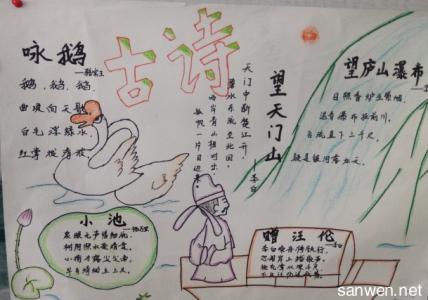 古诗
咏鹅
—骆宾王
鹅、鹅、鹅、
曲项向天歌
白毛浮绿水,
红掌拨清波。
望天门山
—李白
天门中断楚江开,
碧水东流至此回,
两岸青山相对出,
孤帆一片日边来
望庐山瀑布
日照香炉生紫烟,
遥看瀑布挂前川,
飞流直下三千尺,
疑是银河落九天。
小池
—杨万里
泉眼无声惜细流,
树阴照水爱晴柔,
小荷才露尖尖角,
早有蜻蜓立上头。
赠汪伦
李白乘舟将欲行,
忽闻岸上踏歌声,
桃花潭水深千尺
不及汪伦送我情
sanwen.net